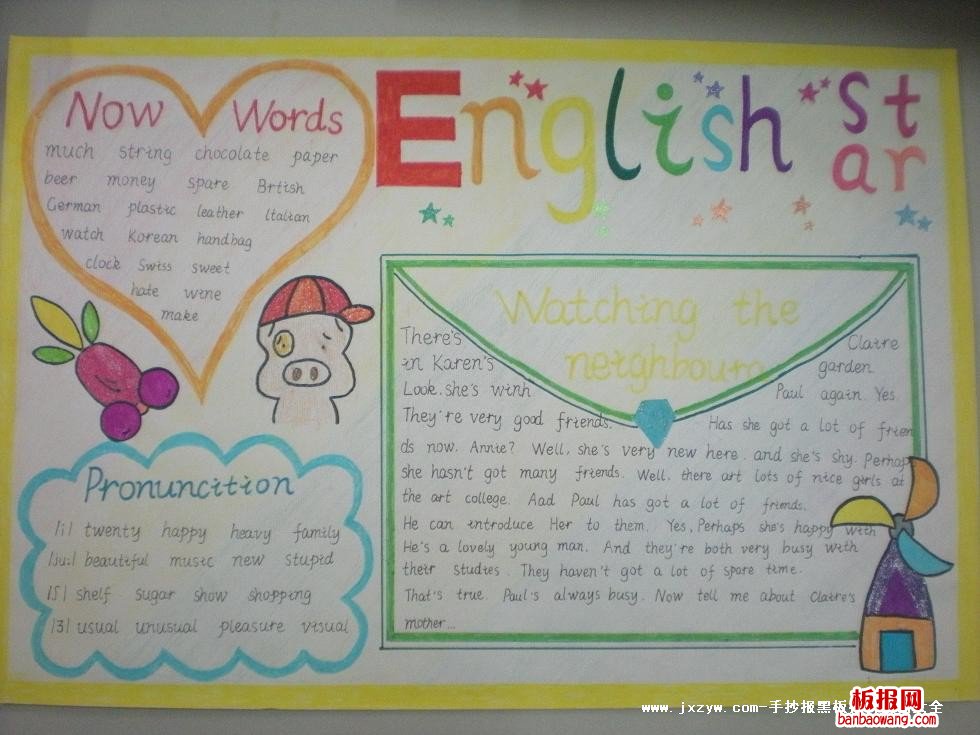 Now Words
much string chocolate paper
beer money spare Brtish
German plastic leather ltalian
watch Korean handbag
clock Swiss sweet
hate wine
make
English
st
ar
Pronuncition
/i/ twenty happy heavy family
/ju:/ beautiful music new stupid
/ʃ/ shelf sugar show shopping
/ʒ/ usual unusual pleasure visual
Watching the
neighbourg
There's Claire
in Karen's garden.
Look, she's winh Paul again. Yes
They're very good friends. Has she got a lot of frien
ds now, Annie? Well, she's very new here, and she's shy. Perhap
she hasn't got many friends. Well, there art lots of nice girls at
the art college. Aad Paul has got a lot of friends.
He can introduce Her to them. Yes, Perhaps she's happy with
He's a lovely young man. And they're both very busy with
their studies. They haven't got a lot of spare time.
That's true. Paul's always busy. Now tell me about Claire's
mother...
www.jxzyw.com-手抄报黑板 大全
板报网
banbaowang.com